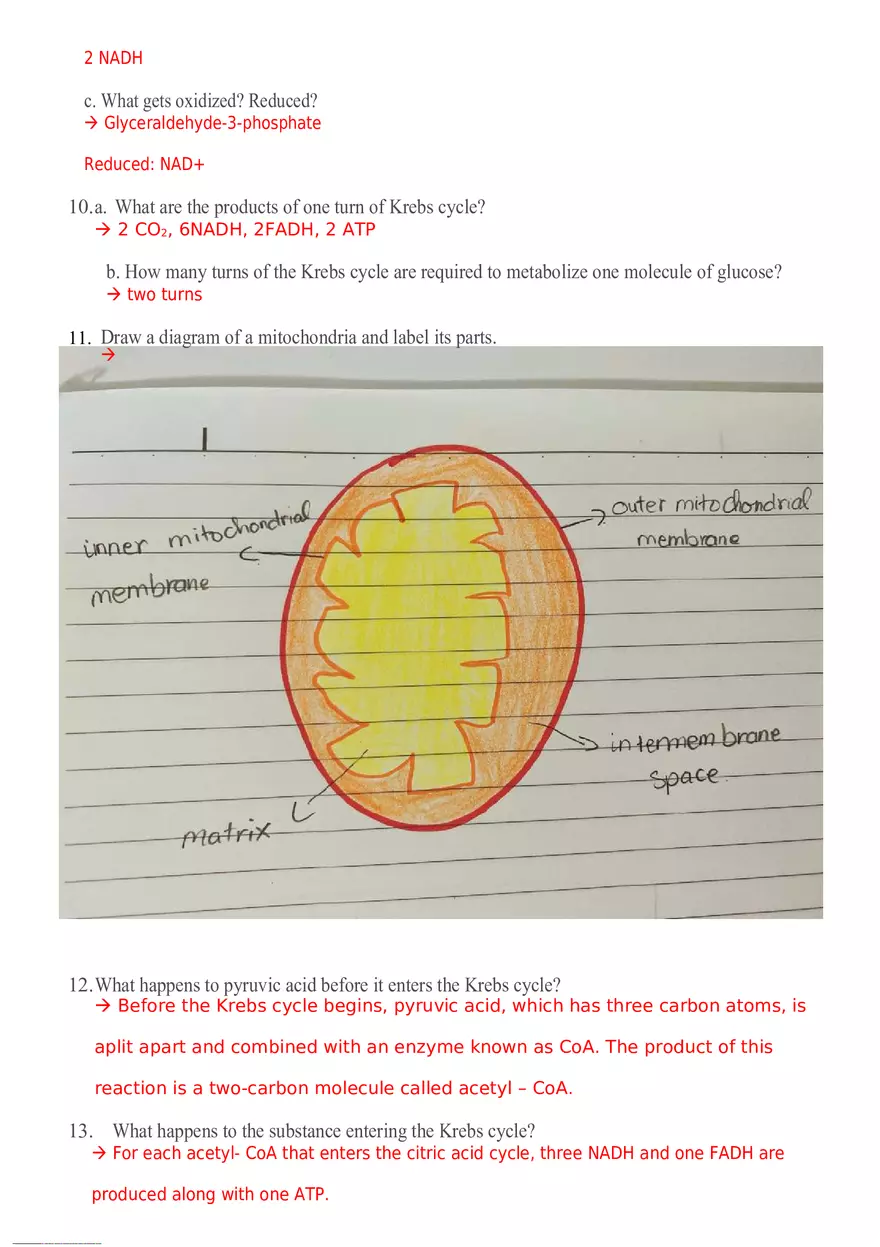 2 NADH
c. What gets oxidized? Reduced?
→ Glyceraldehyde-3-phosphate
Reduced: NAD+
10.a. What are the products of one turn of Krebs cycle?
→ 2 CO₂, 6NADH, 2FADH, 2 ATP
b. How many turns of the Krebs cycle are required to metabolize one molecule of glucose?
→ two turns
11. Draw a diagram of a mitochondria and label its parts.
→
inner mitochondrial
membrane
outer mitochondrial
membrane
intermembrane
space
matrix
12.What happens to pyruvic acid before it enters the Krebs cycle?
→ Before the Krebs cycle begins, pyruvic acid, which has three carbon atoms, is
aplit apart and combined with an enzyme known as CoA. The product of this
reaction is a two-carbon molecule called acetyl – CoA.
13. What happens to the substance entering the Krebs cycle?
→ For each acetyl- CoA that enters the citric acid cycle, three NADH and one FADH are
produced along with one ATP.